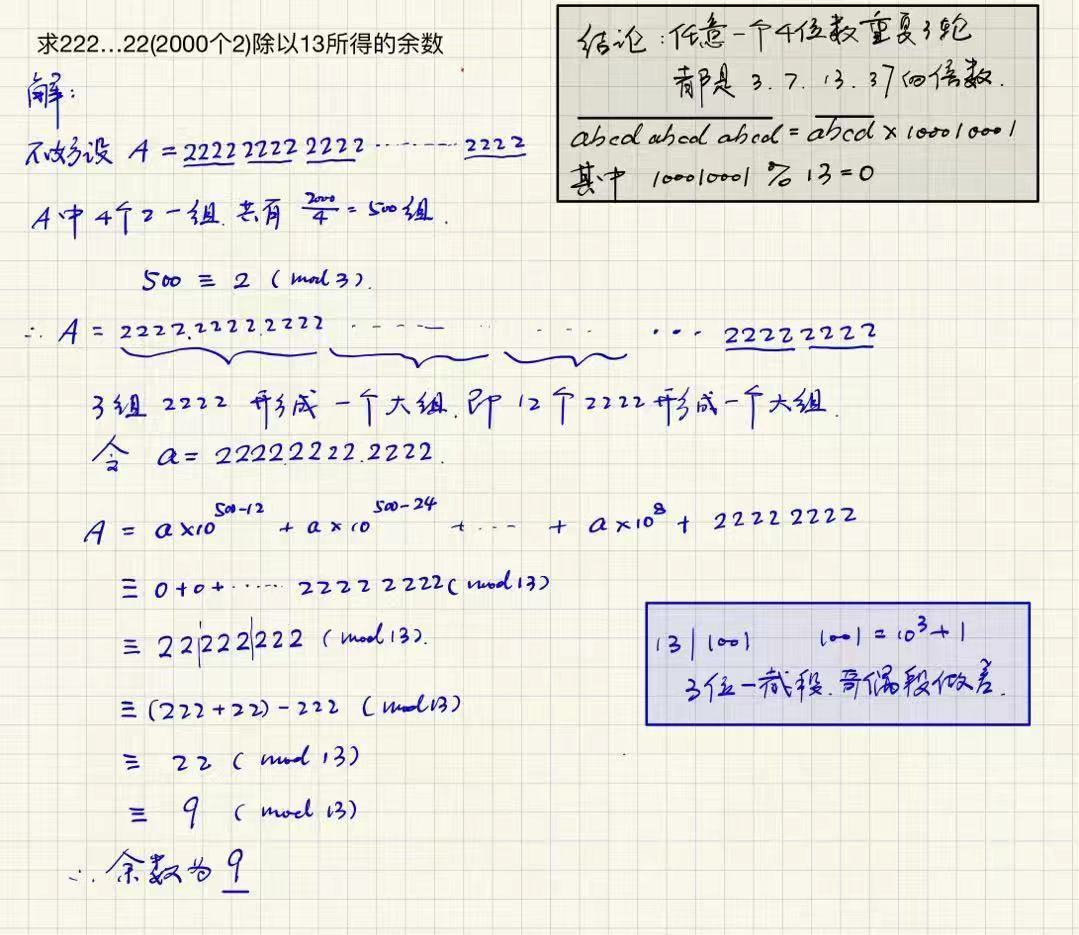 求222...22(2000个2)除以13所得的余数
结论:任意一个4位数重复3轮
都是 3. 7. 13. 37的倍数.
abcd abcd abcd = abcd × 100010001
其中 100010001 % 13 = 0
解:
不妨设 A = 2222 2222 2222 ········ 2222
A中 4个2一组 共有 2000/4 = 500组.
500 ≡ 2 (mod 3).
∴ A = 2222.2222.2222 ····— ·· · ·· ··· 2222 2222
3组 2222 形成一个大组. 即 12个2222形成一个大组.
令 a = 2222.2222.2222.
A = a×10^(500-12) + a×10^(500-24) + ···· + a×10^8 + 2222 2222
≡ 0+0+······ 2222 2222 (mod 13)
≡ 22|222|222 (mod 13).
≡ (222+22)-222 (mod 13)
≡ 22 (mod 13)
≡ 9 (mod 13)
∴ 余数为 9
13 | 1001 1001 = 10³+1
3位一截段. 奇偶段做差.